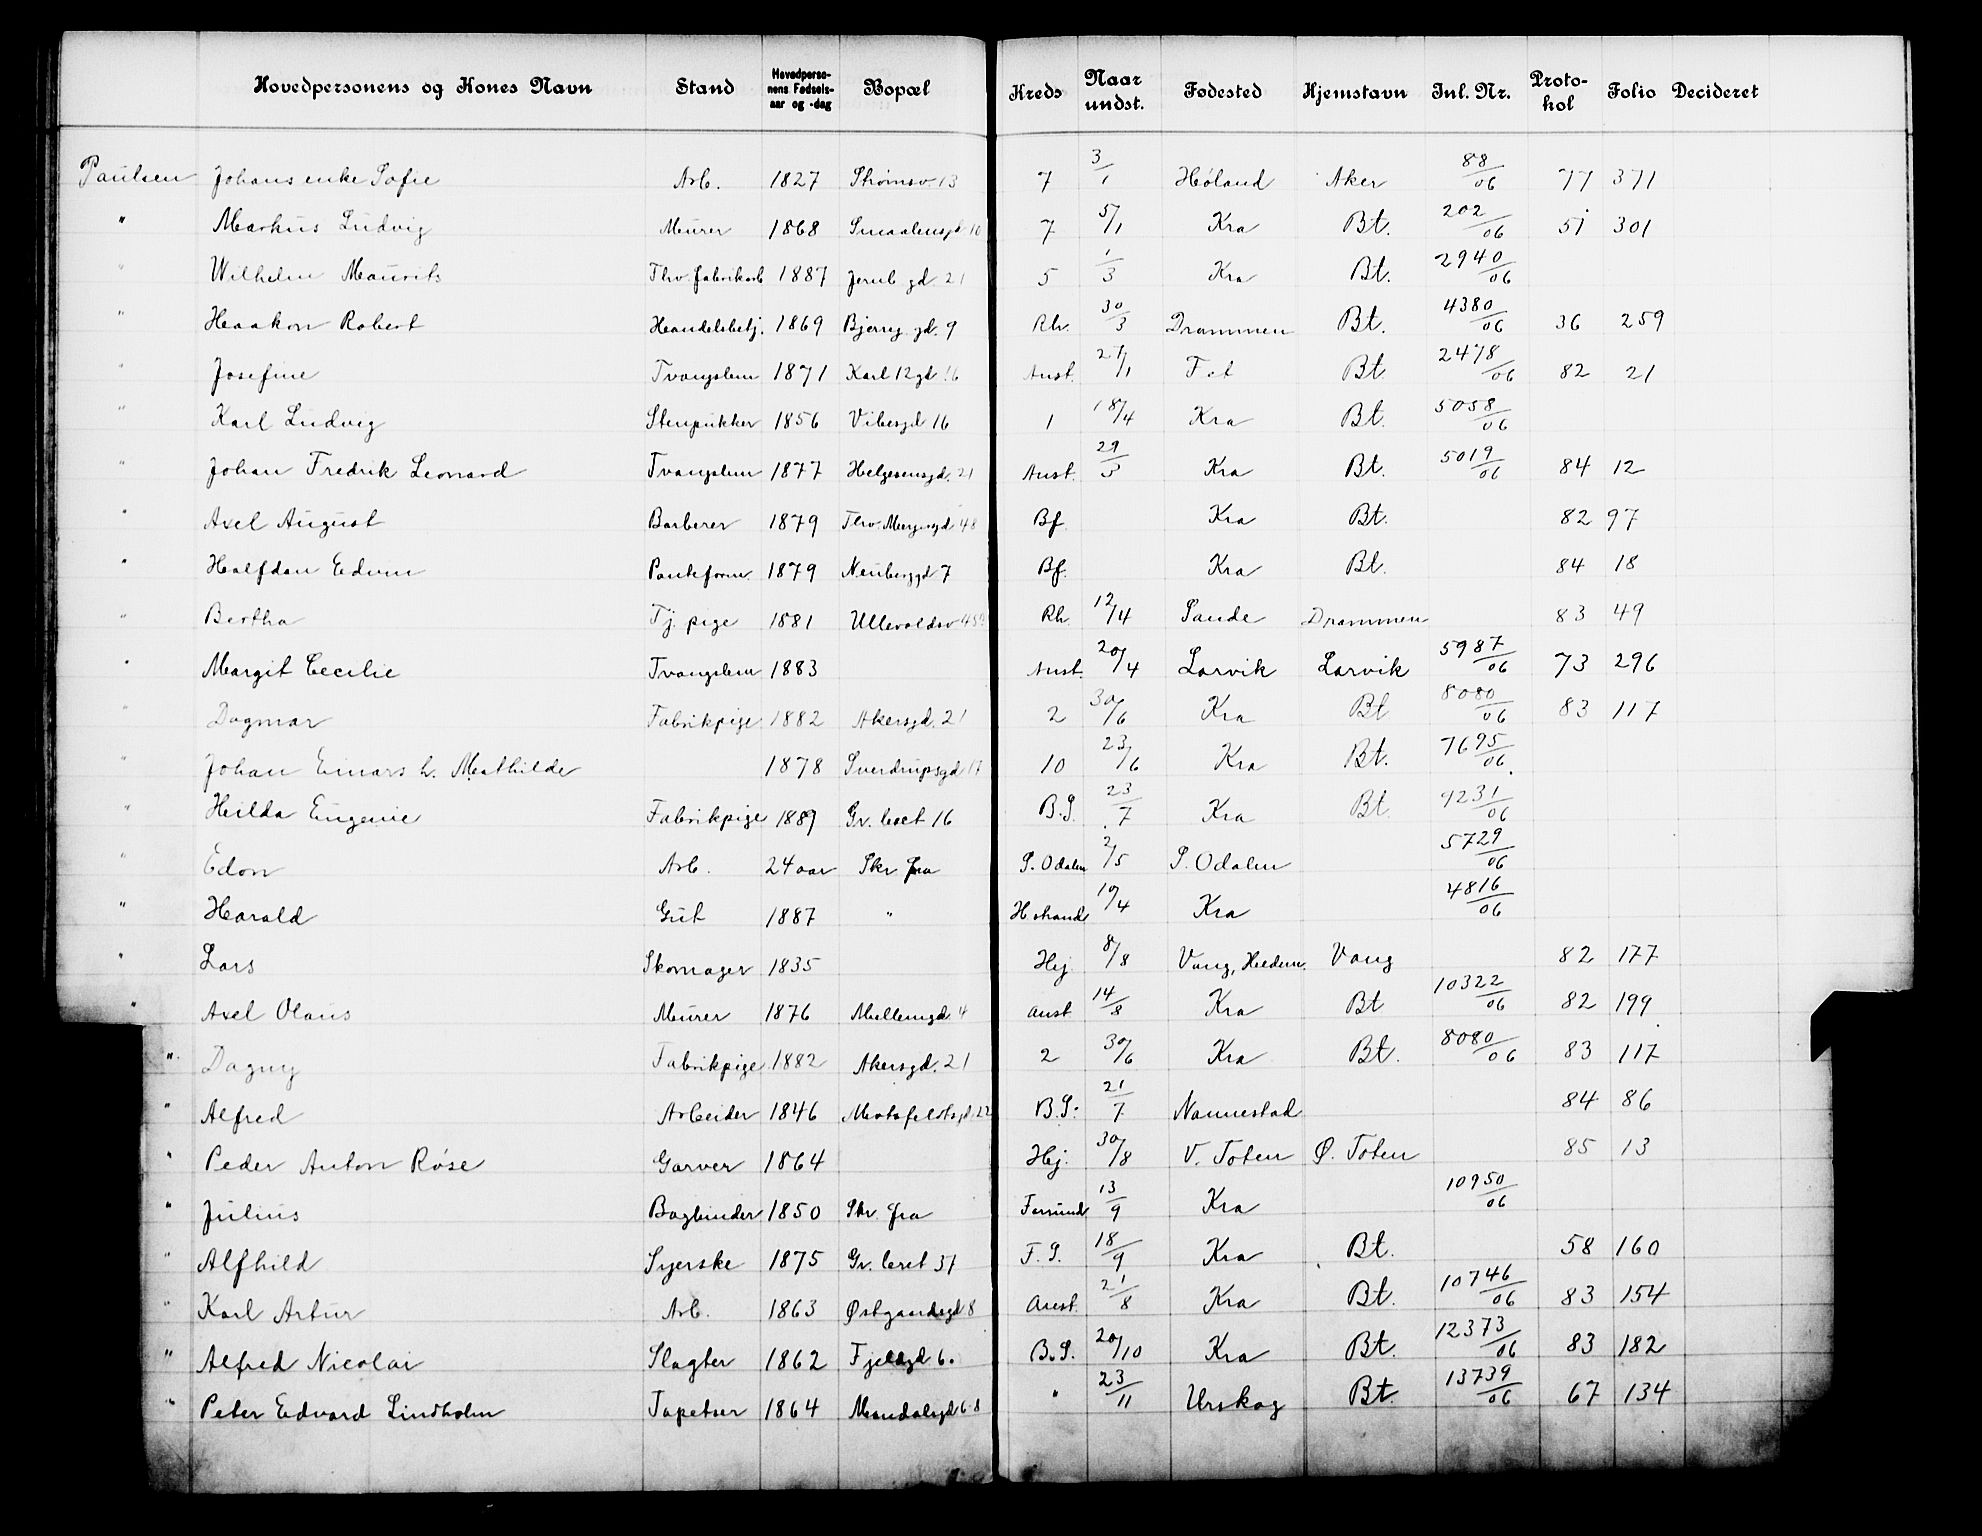 Hovedpersonens og Kones Navn Stand Hovedperso-nens Fødsels-aar og -dag Bopæl Kreds Naar undst. Fødested Hjemstavn Inl. Nr. Proto-kol Folio Decideret
Paulsen Johans enke Sofie Arb. 1827 Strømsv. 13 7 3/1 Høland Aker 88/06 77 371
" Markus Ludvig Murer 1868 Smaalensgd 10 7 5/1 Kra Bt. 202/06 51 301
" Wilhelm Maurits Thv. fabrikarb 1887 Jernb gd 21 5 1/3 Kra Bt. 2940/06
" Haakon Robert Handelsbetj. 1869 Bjerreg. gd. 9 Rh. 30/3 Drammen Bt. 4380/06 36 259
" Josefine Tvangslem 1871 Karl 12 gd 16 Anst. 27/1 Fet Bt. 2478/06 82 21
" Karl Ludvig Stenpukker 1856 Vibesgd 16 1 18/4 Kra Bt. 5058/06
" Johan Fredrik Leonard Tvangslem 1877 Helgesensgd. 21 Anst. 29/3 Kra Bt. 5019/06 84 12
" Axel August Barberer 1879 Thv. Meyersgd 48 Bf. Kra Bt. 82 97
" Halfdan Edvin 1879 Neuberggd 7 Bf. Kra Bt. 84 18
" Bertha Tj. pige 1881 Ullevoldsv Rh. 12/4 Sande Drammen 83 49
" Margit Cecilie Tvangslem 1883 Anst. 20/4 Larvik Larvik 5987/06 73 296
" Dagmar Fabrikpige 1882 Akersgd. 21 2 30/6 Kra Bt 8080/06 83 117
" Johan Einars h. Mathilde 1878 Sverdrupsgd 17 10 23/6 Kra Bt. 7695/06
" Hilda Eugenie Fabrikpige 1889 Gr. leret 16 B.S. 23/7 Kra Bt. 9231/06
" Edon Arb. 24 aar Skr fra S. Odalen 2/5 S. Odalen 5729/06
" Harald Gut 1887 " 10/4 Kra 4816/06
" Lars Skomager 1835 Hej 8/8 Vang, Hedem. Vang 82 177
" Axel Olaus Murer 1876 Mellemgd 4 Anst 14/8 Kra Bt 10322/06 82 199
" Dagny Fabrikpige 1882 Akersgd. 21 2 30/6 Kra Bt. 8080/06 83 117
" Alfred Arbeider 1846 Motzfeldtsgd. 22 B.S. 21/7 Nannestad 84 86
" Peder Anton Røse Garver 1864 Hej. 30/8 V. Toten Ø. Toten 85 13
" Julius Bogbinder 1850 Skr. fra Farsund 13/9 Kra 10950/06
" Alfhild Syerske 1875 Gr. leret 37 F. S. 18/9 Kra Bt. 58 160
" Karl Artur Arb. 1863 Østgaardsgd 8 Anst. 21/8 Kra Bt. 10746/06 83 154
" Alfred Nicolai Slagter 1862 Fjeldgd 6. B.S. 20/10 Kra Bt. 12373/06 83 182
" Peter Edvard Lindholm Tapetser 1864 Mandalsgd 6-8 " 23/11 Urskog Bt. 13739/06 67 134